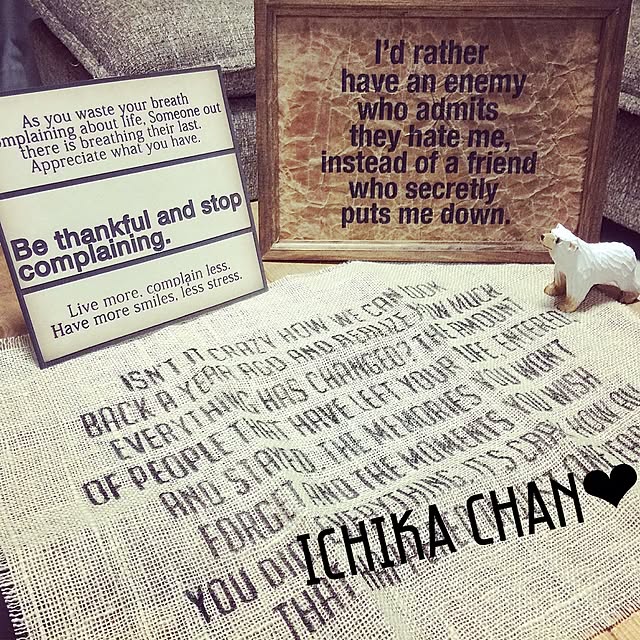 As you waste your breath
omplaining about life, Someone out
there is breathing their last.
Appreciate what you have.
Be thankful and stop
complaining.
Live more, complain less.
Have more smiles, less stress.
I'd rather
have an enemy
who admits
they hate me,
instead of a friend
who secretly
puts me down.
ISN'T IT CRAZY HOW WE CAN LOOK
BACK A YEAR AGO AND REALIZE HOW MUCH
EVERYTHING HAS CHANGED? THE AMOUNT
OF PEOPLE THAT HAVE LEFT YOUR LIFE, ENTERED,
AND STAYED. THE MEMORIES YOU WON'T
FORGET AND THE MOMENTS YOU WISH
YOU DID EVERYTHING. IT'S CRAZY HOW
THAT
ICHIKA CHAN♥